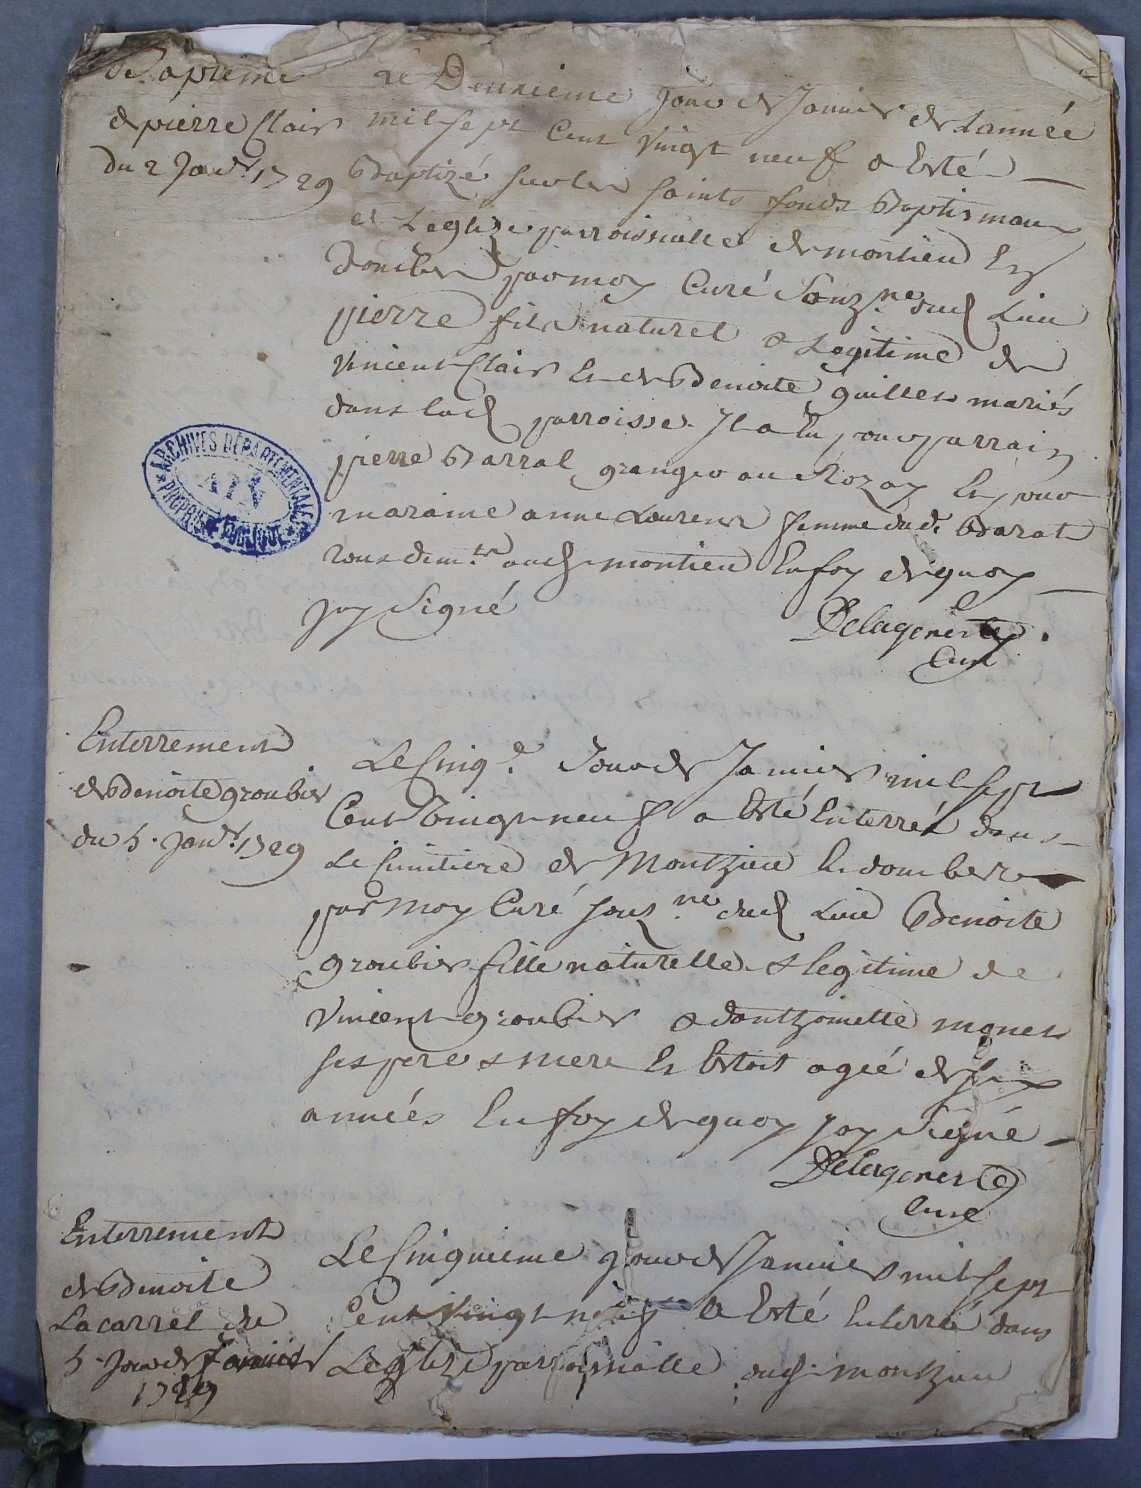 Bapteme
de pierre Clair
du 2 Janr. 1729
Le Deuxieme Jour de Janvier de Lannée
mil sept Cent Vingt neuf a Esté
Baptizé sur les saints fonds Baptismaux
de Leglize parroissialle de montieu En
Dombes par moy Curé Sousne. dud Lieu
pierre fils naturel & Legitime de
Vincent Clair Et de Benoite guillet mariés
dans lad parroisse. Il a Eu pour parrain
pierre Barral granger au Rozay Et pour
maraine anne Laurent femme dud. Barat
tous demts. aud. montieu En foy de quoy
Jay Signé
Delagoneste
Curé
Enterrement
de Benoite groubier
du 5. Janr. 1729
Le Cinqe. Jour de Janvier mil sept
Cent Vingt neuf a Esté Enterré dans
Le Cimitiere de Montzieu En dombes
par Moy Curé sousne. dud Lieu Benoite
groubier fille naturelle & legitime de
Vincent groubier & danthoinette monet
ses pere & mere Et Estoit ageé de six
années En foy de quoy Jay Signé
Delagoneste
Curé
Enterrement
de Benoite
Lacarrel du
5. Jour de Janvier
1729
Le Cinquieme Jour de Janvier mil sept
Cent Vingt neuf a Esté Enterré dans
Leglize parroissialle dud. montzieu
ARCHIVES DÉPARTEMENTALES
AIN
PROPRIÉTÉ PUBLIQUE